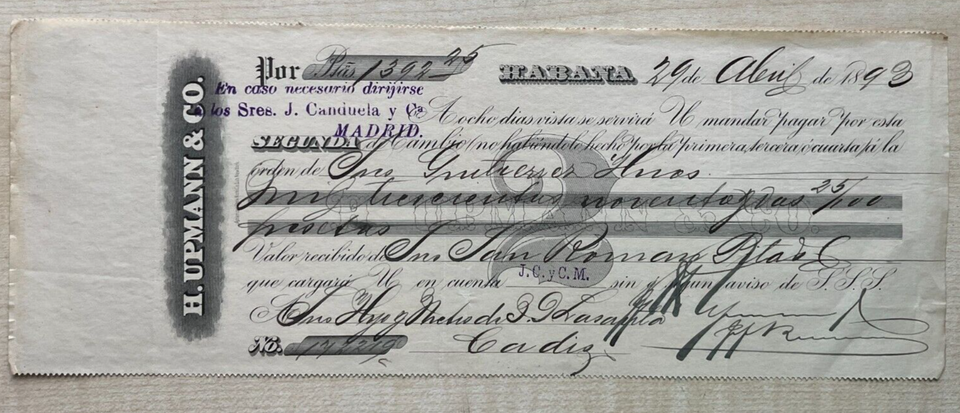 H. UPMANN & CO.
Por Ptas 1392 25
HABANA 29 de Abril de 1893
En caso necesario dirijirse
a los Sres. J. Canduela y Ca.
MADRID.
A ocho días vista se servirá U mandar pagar por esta
SEGUNDA de Cambio (no habiéndolo hecho por la primera, tercera ó cuarta) á la
orden de Sres Gutierrez Hnos.
mil trescientas noventa y dos 25/100
pesetas
Valor recibido de Sres San Roman Pita & C
J. C. y C. M.
que cargará U en cuenta sin aviso de S.S.S.
A Sres Hijos
Cadiz
No.
2